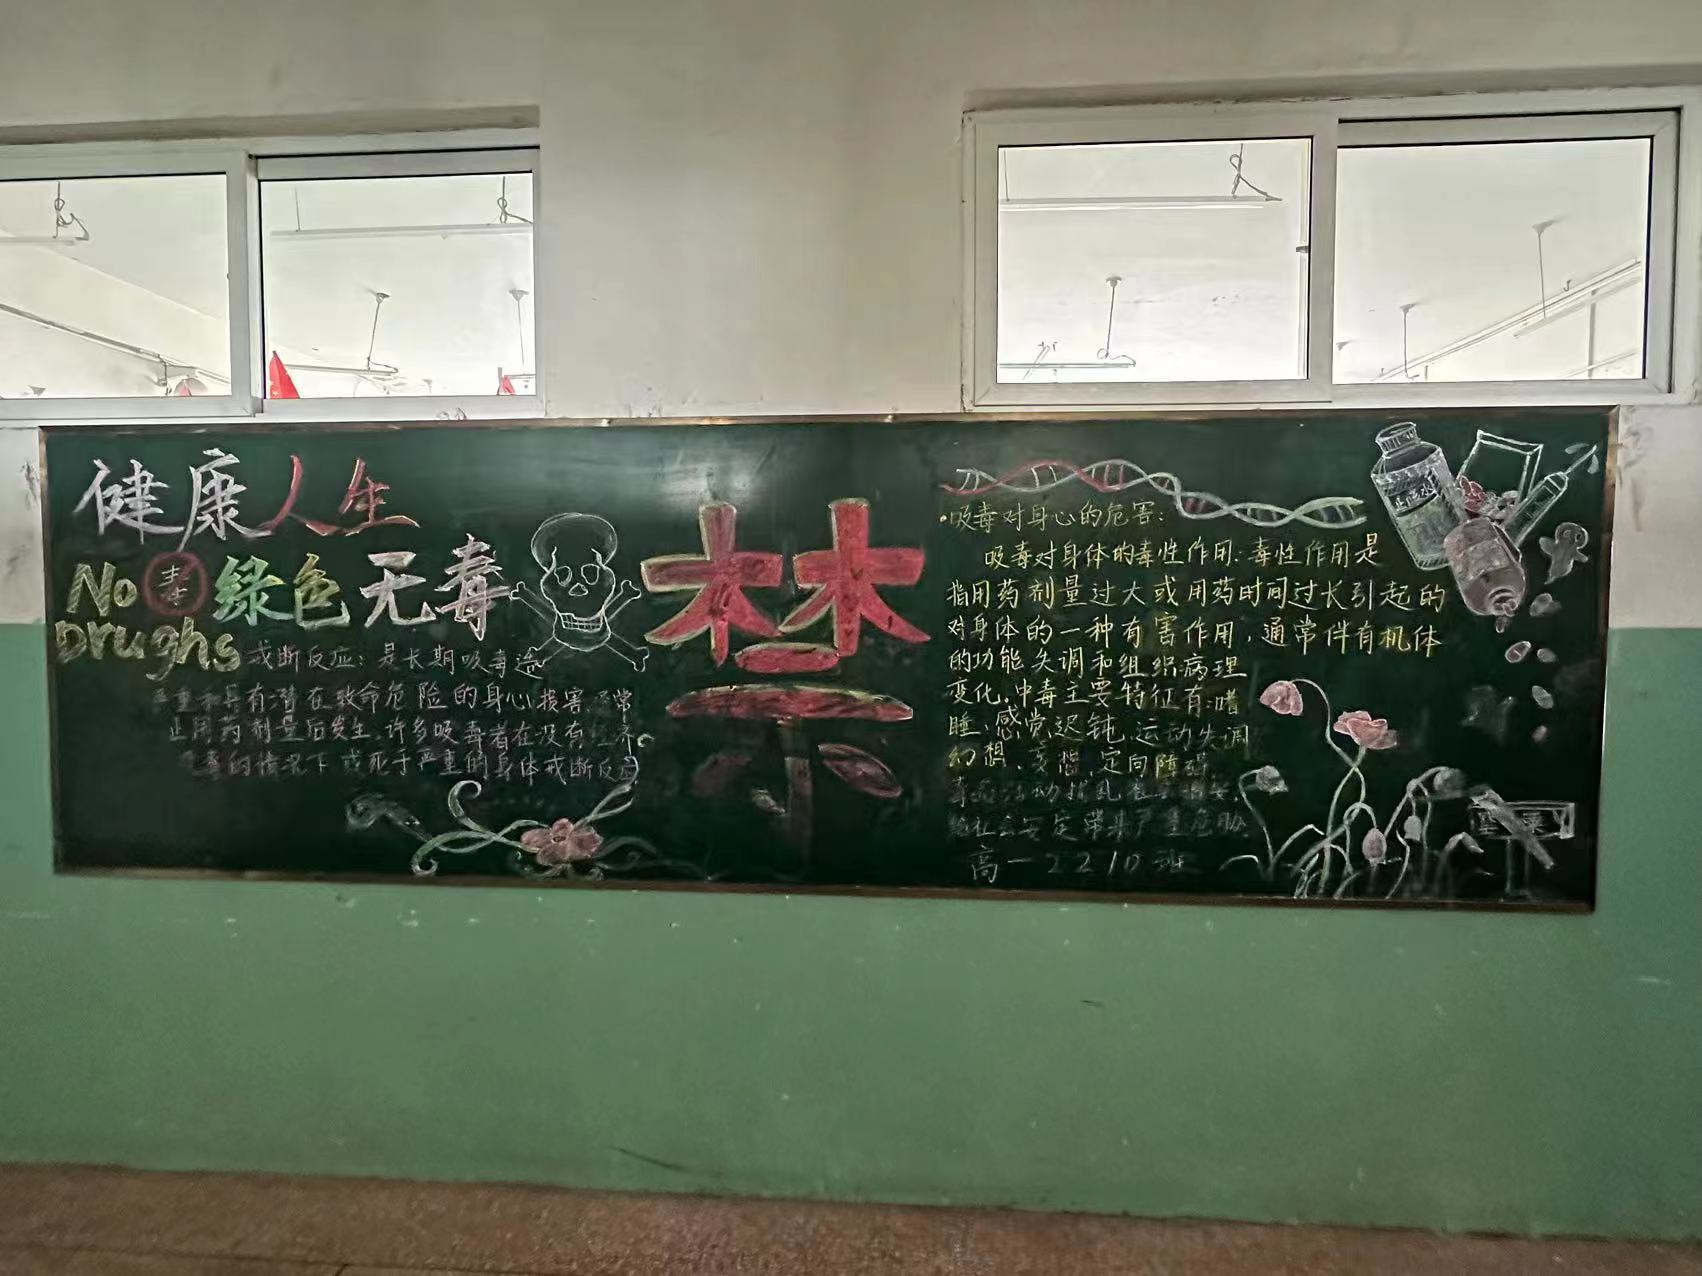 健康人生
No 毒 绿色无毒
Drughs
戒断反应：是长期吸毒造
严重和具有潜在致命危险的身心损害
止用药剂量后发生.许多吸毒者在没有经济
的情况下或死于严重的身体戒断反应
禁
·吸毒对身心的危害：
吸毒对身体的毒性作用：毒性作用是
指用药剂量过大或用药时间过长引起的
对身体的一种有害作用，通常伴有机体
的功能失调和组织病理
变化.中毒主要特征有：嗜
睡、感觉迟钝、运动失调
幻想、妄想、定向障碍
毒品活动扰乱
给社会安定带来严重威胁
高一2210班